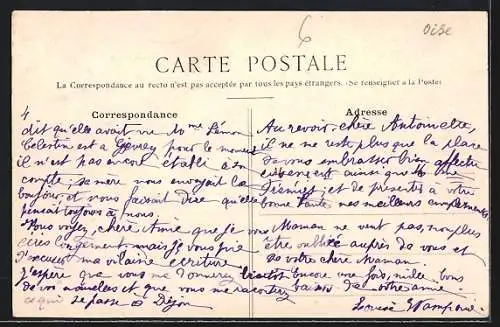 6
Oise
CARTE POSTALE
La Correspondance au recto n'est pas acceptée par tous les pays étrangers. (Se renseigner à la Poste)
Correspondance
4
dit qu'elle avait vu Mme Lémon
Célestin est à Gevrey pour le moment
il n'est pas encore établi à son
compte; sa mère nous envoyait le
bonjour et nous faisait dire qu'elle
pensait toujours à nous.
Vous voyez, chère Amie que je vous
écris longuement mais je vous prie
d'excuser ma vilaine écriture
J'espère que vous me donnerez bientôt
de vos nouvelles et que vous me raconterez
ce qui se passe à Dijon
Adresse
Au revoir, chère Antoinette,
il ne me reste plus que la place
de vous embrasser bien affectu
eusement ainsi que
et de présenter à votre
bonne tante nos meilleurs compliments
Maman ne veut pas, non plus
être oubliée auprès de vous et
de votre chère Maman.
encore une fois, mille bons
baisers de votre amie.
Louise